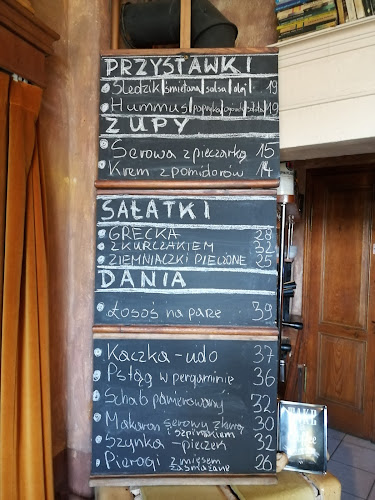 PRZYSTAWKI
Śledzik/śmietana/salsa/olej/ 19
Hummus/papryka/ogórek/ 19
ZUPY
Serowa z pieczarką 15
Krem z pomidorów 14
SAŁATKI
GRECKA 28
Z KURCZAKIEM 32
ZIEMNIACZKI PIECZONE 25
DANIA
Łosoś na parze 39
Kaczka - udo 37
Pstrąg w pergaminie 36
Schab panierowany 32
Makaron serowy z kurą 30
i szpinakiem
Szynka - pieczeń 32
Pierogi z mięsem 26
zasmażane